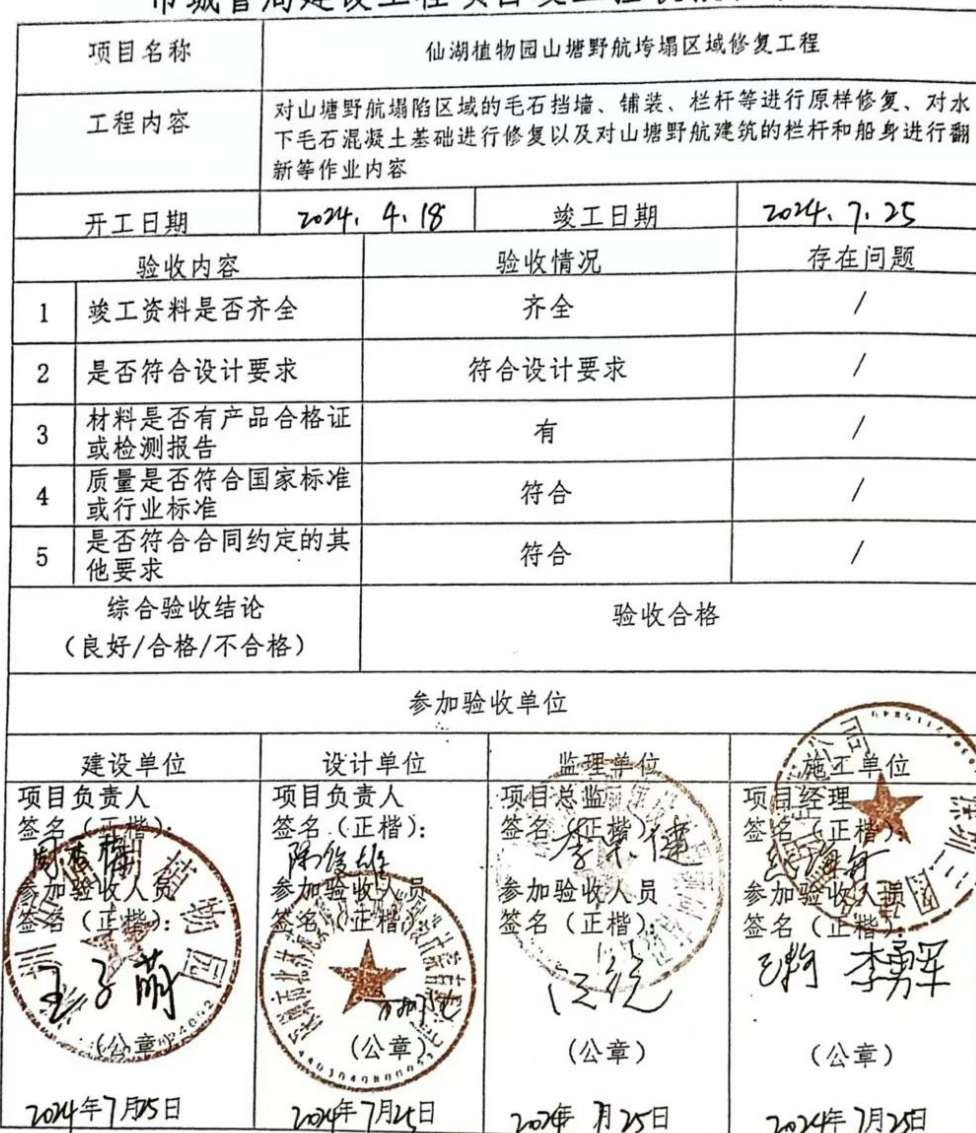 项目名称
仙湖植物园山塘野航垮塌区域修复工程
工程内容
对山塘野航塌陷区域的毛石挡墙、铺装、栏杆等进行原样修复、对水
下毛石混凝土基础进行修复以及对山塘野航建筑的栏杆和船身进行翻
新等作业内容
开工日期
2024. 4. 18
竣工日期
2024. 7. 25
验收内容
验收情况
存在问题
1
竣工资料是否齐全
齐全
/
2
是否符合设计要求
符合设计要求
/
3
材料是否有产品合格证
或检测报告
有
/
4
质量是否符合国家标准
或行业标准
符合
/
5
是否符合合同约定的其
他要求
符合
/
综合验收结论
(良好/合格/不合格)
验收合格
参加验收单位
建设单位
项目负责人
签名(正楷):
参加验收人员
签名(正楷):
王子萌
(公章)
2024年7月25日
设计单位
项目负责人
签名(正楷):
陈俊雄
参加验收人员
签名(正楷):
(公章)
2024年7月25日
监理单位
项目总监
签名(正楷):
参加验收人员
签名(正楷):
(公章)
2024年7月25日
施工单位
项目经理
签名(正楷):
参加验收人员
签名(正楷):
李勇军
(公章)
2024年7月25日